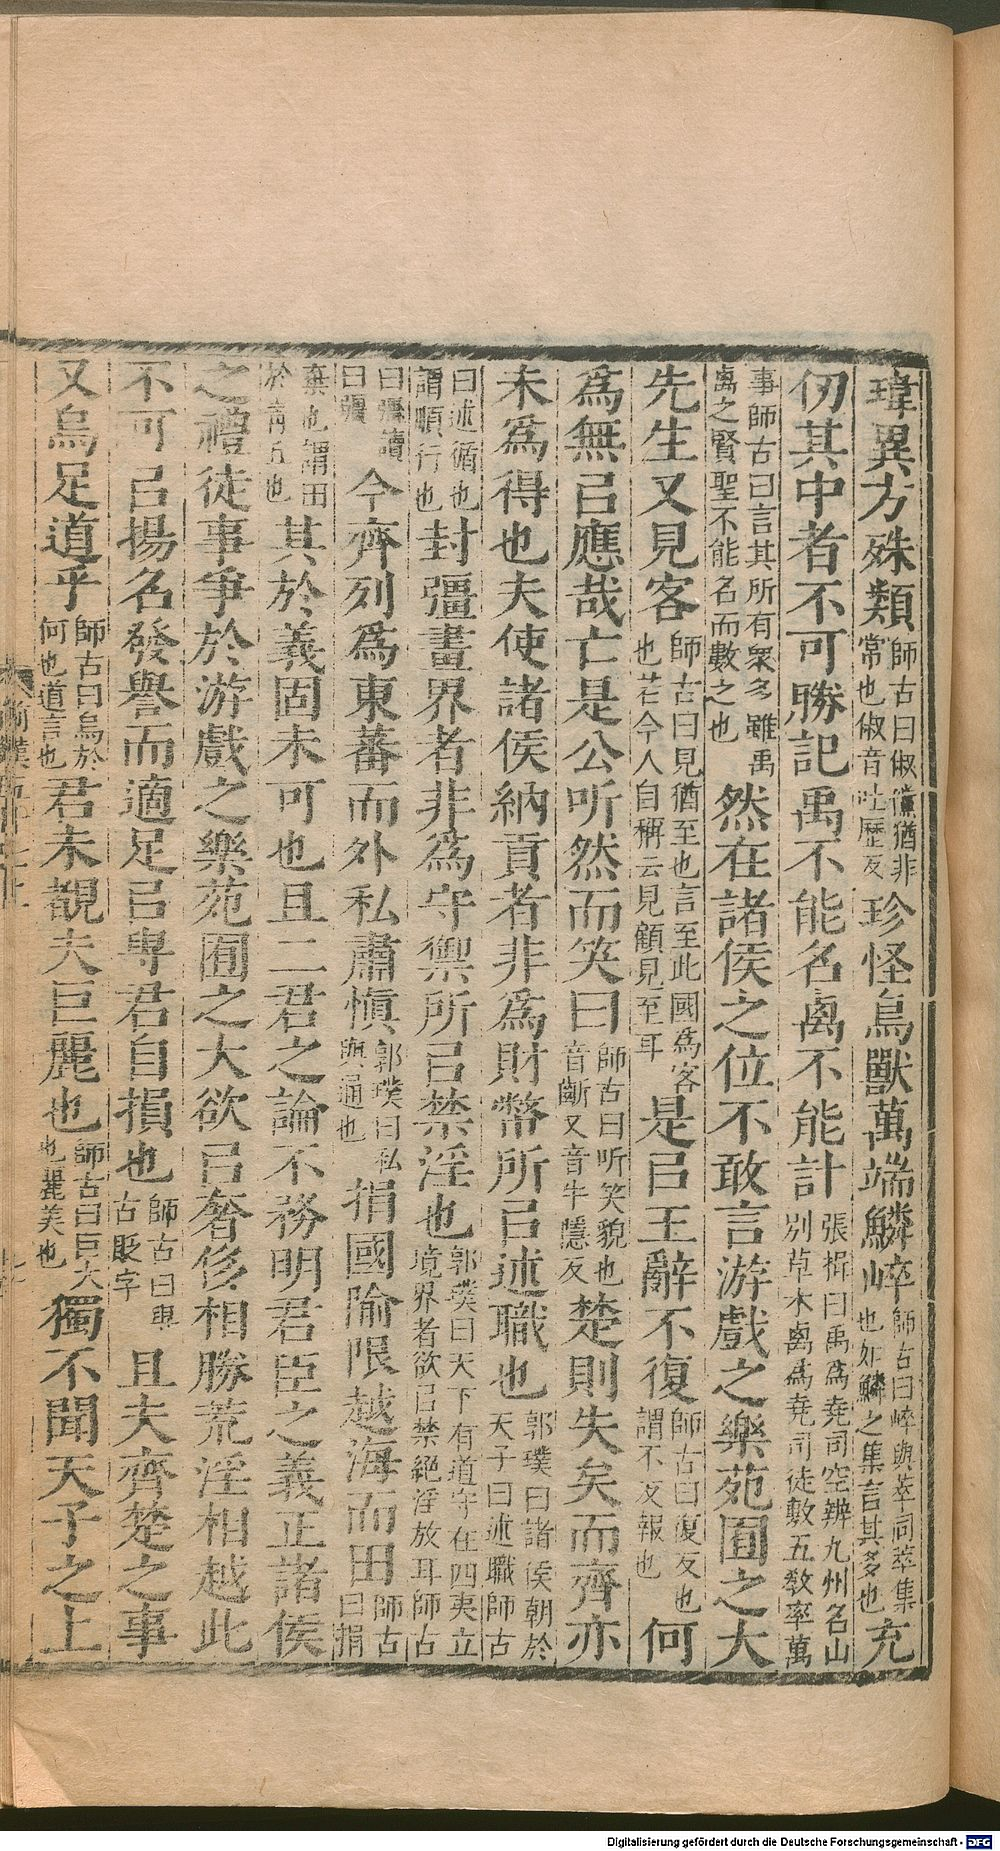 瑋異方殊類師古曰俶儻猶非常也俶音吐歷反珍怪鳥獸萬端鱗崪師古曰崪與萃同萃集也如鱗之集言其多也充
仞其中者不可勝記禹不能名禼不能計張揖曰禹爲堯司空辨九州名山別草木禼爲堯司徒敷五敎率萬
事師古曰言其所有衆多雖禹禼之賢聖不能名而數之也然在諸侯之位不敢言游戲之樂苑囿之大
先生又見客師古曰見猶至也言至此國爲客也若今人自稱云見顧見至耳是㠯王辭不復師古曰復反也謂不反報也何
爲無㠯應哉亡是公听然而笑曰師古曰听笑貌也音斷又音牛隱反楚則失矣而齊亦
未爲得也夫使諸侯納貢者非爲財幣所㠯述職也郭璞曰諸侯朝於天子曰述職師古
曰述循也謂順行也封彊畫界者非爲守禦所㠯禁淫也郭璞曰天下有道守在四夷立境界者欲㠯禁絕淫放耳師古
曰彊讀曰疆今齊列爲東蕃而外私肅愼郭璞曰私與通也捐國隃限越海而田師古曰捐
棄也謂田於靑丘也其於義固未可也且二君之論不務明君臣之義正諸侯
之禮徒事爭於游戲之樂苑囿之大欲㠯奢侈相勝荒淫相越此
不可㠯揚名發譽而適足㠯𢾭君自損也師古曰𢾭古貶字且夫齊楚之事
又烏足道乎師古曰烏於何也道言也君未覩夫巨麗也師古曰巨大也麗美也獨不聞天子之上
Digitalisierung gefördert durch die Deutsche Forschungsgemeinschaft - DFG